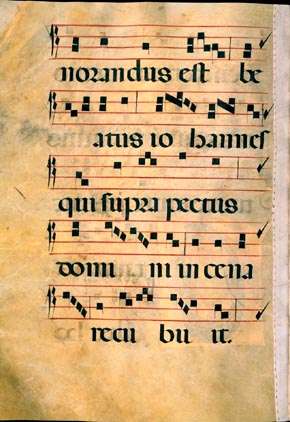 norandus est be
atus io hannes
qui supra pectus
domi ni in cena
recu bu it.